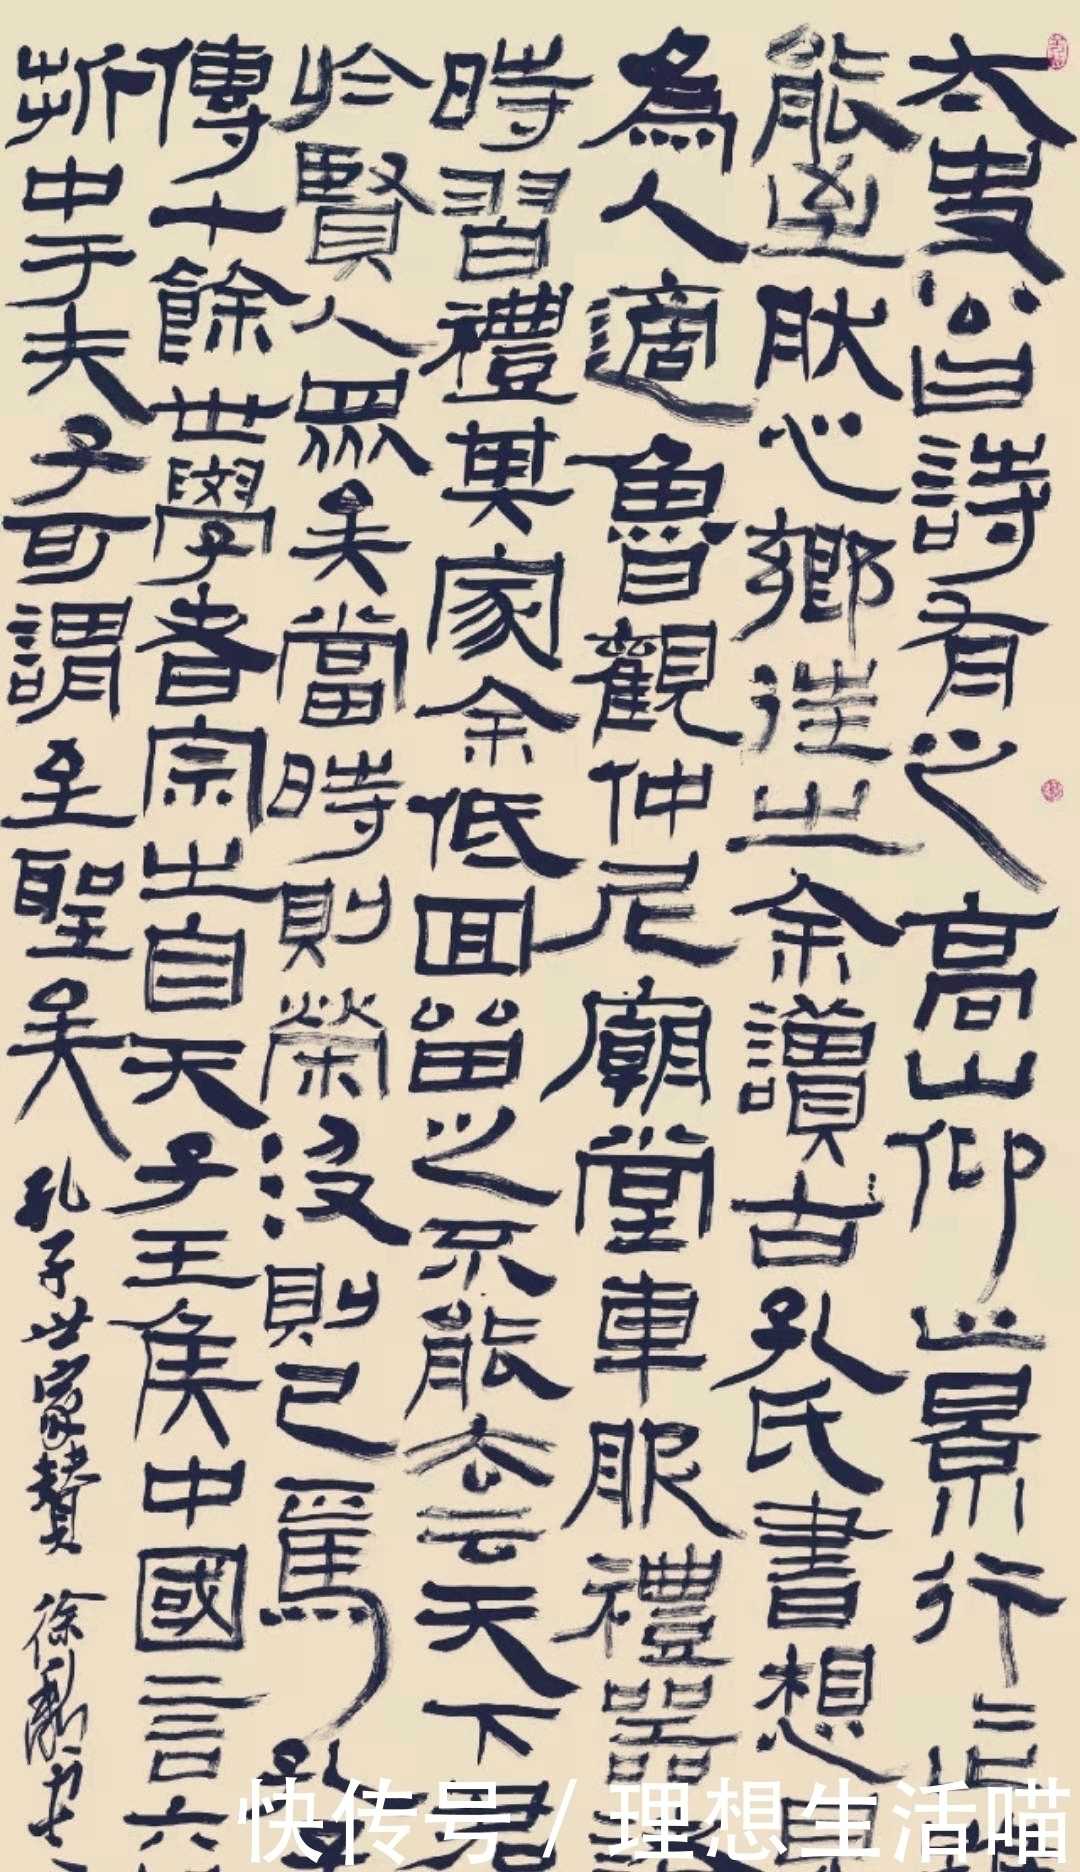 太史公曰詩有之高山仰止景行
能至肰心鄉往之余讀古孔氏書想見
為人適魯觀仲尼廟堂車服禮器
時習禮其家余低回留之不能去云天下君
於賢人眾矣當時則榮沒則已焉孔
傳十餘世學者宗之自天子王侯中國言六
折中于夫子可謂至聖矣
孔子世家贊 徐利
快传号/理想生活喵